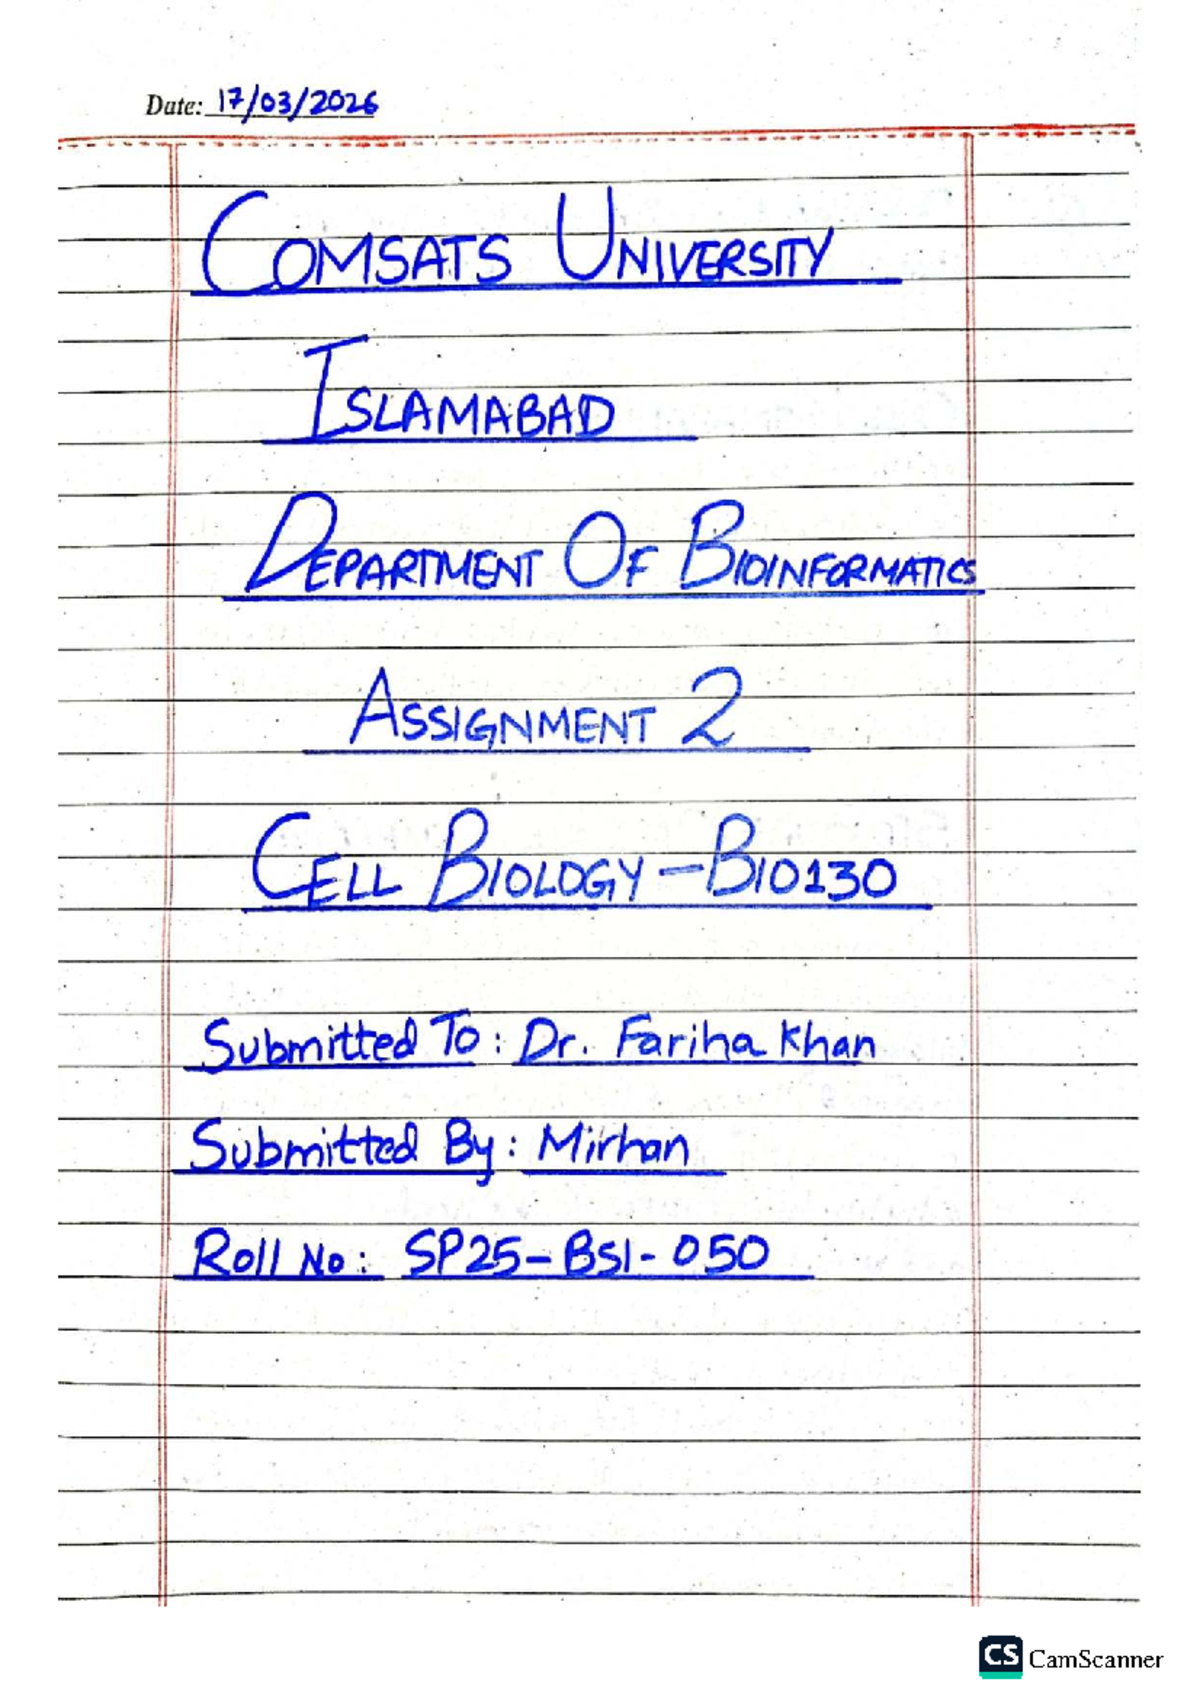 Date: 17/03/2026
COMSATS UNIVERSITY
ISLAMABAD
DEPARTMENT OF BIOINFORMATICS
ASSIGNMENT 2
CELL BIOLOGY-BIO130
Submitted To: Dr. Fariha Khan
Submitted By: Mirhan
Roll No: SP25-BSI-050
CS CamScanner